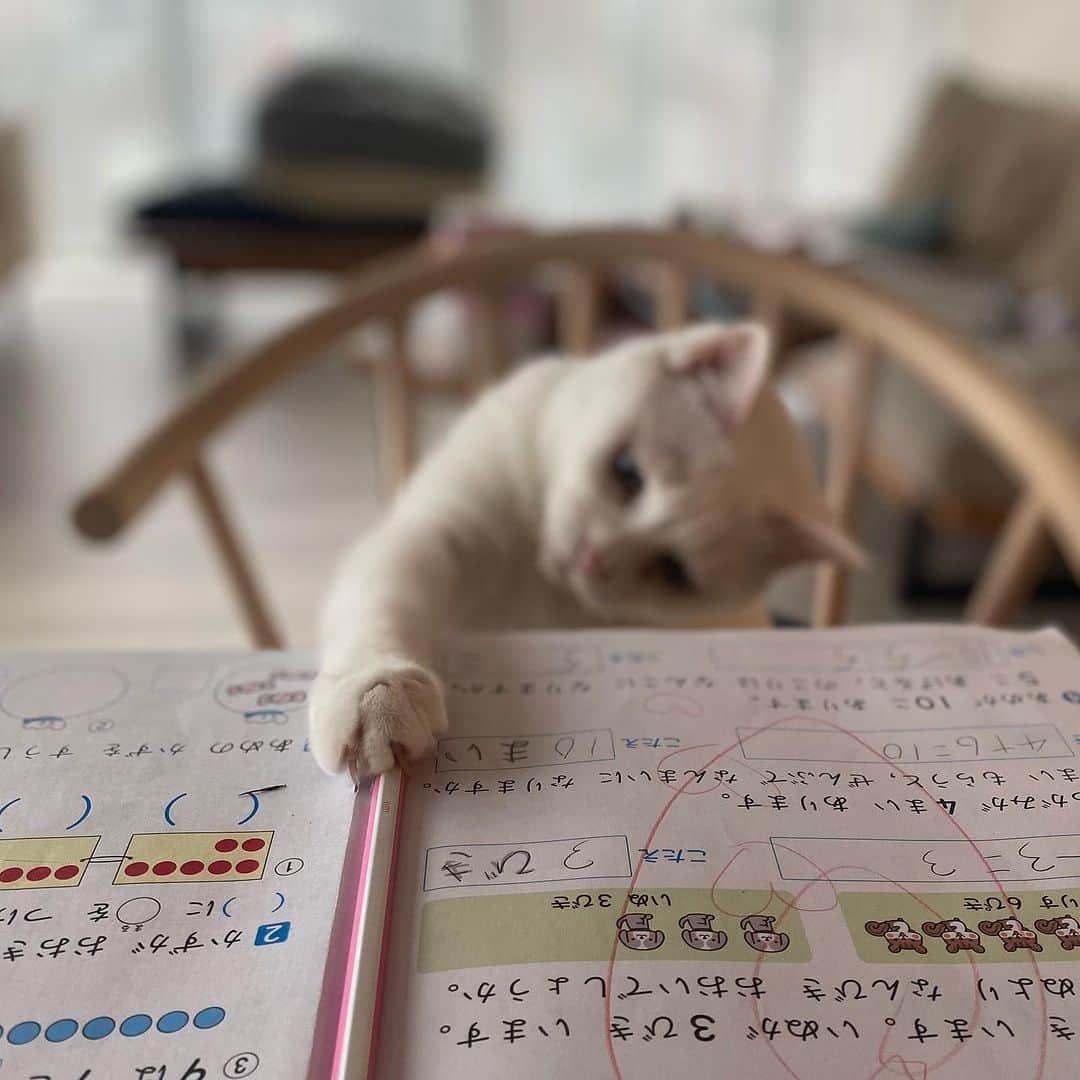 き います。いぬが 3びき います。
ぬより なんびき おおいでしょうか。
りす6びき いぬ 3びき
-3=3 こたえ 3びき
がみが 4まい あります。
まい もらうと、ぜんぶで なんまいに なりますか。
4+6=10 こたえ 10まい
あめが 10こ あります。
5こ あげると、のこりは なんこに なりますか。
こたえ
③
2 かずが おおき
( )に ○を つけ
①
( ) (
あめの かずを すうじ
②